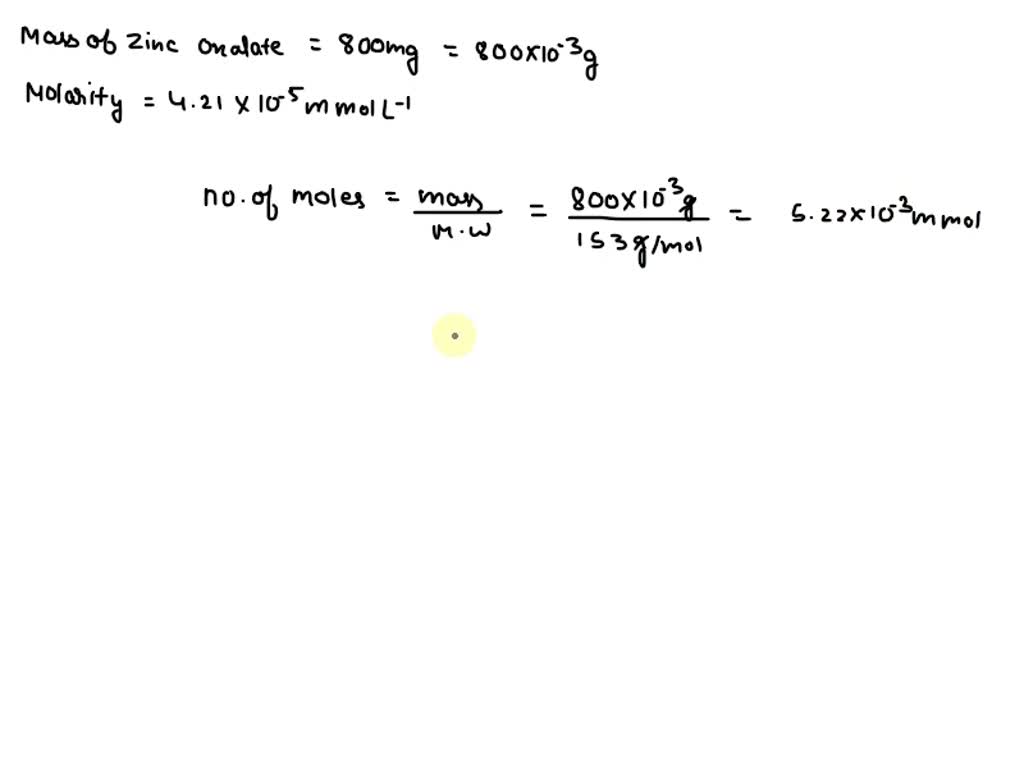 Mass of Zinc Oxalate = 800mg = 800×10⁻³g
Molarity = 4.21 × 10⁻⁵ m mol L⁻¹
no. of moles = mass / M.W = 800×10⁻³g / 153 g/mol = 5.22×10⁻³ m mol